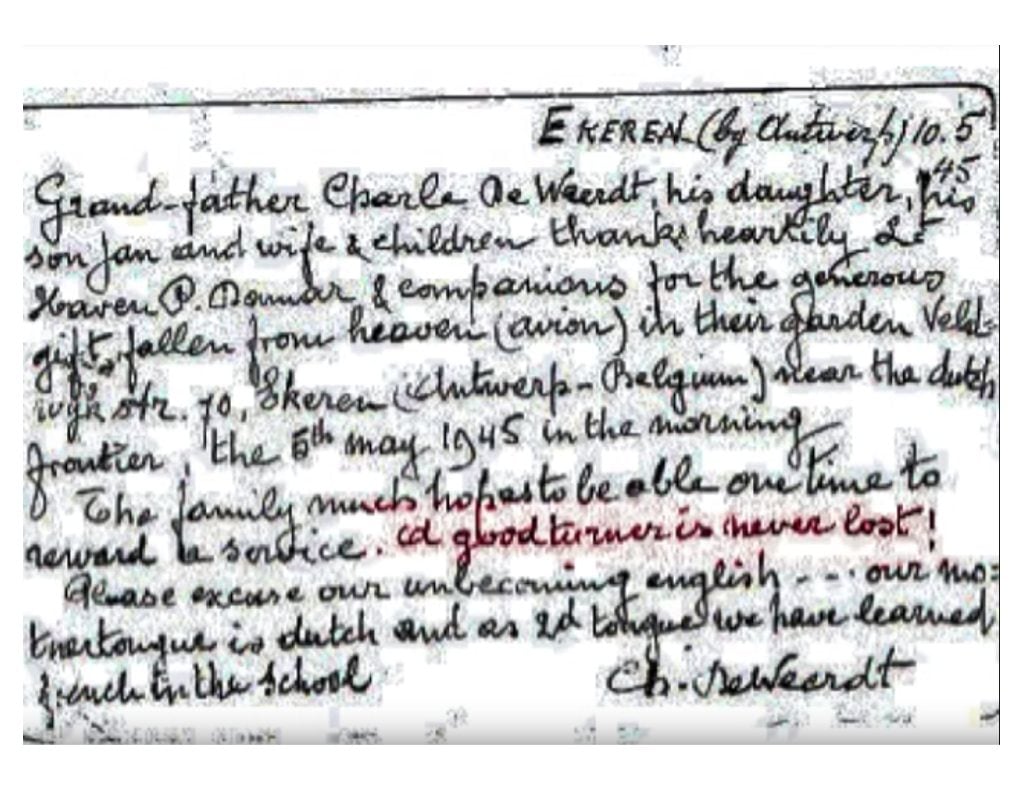 EKEREN (by Antwerp) 10.5
45
Grand-father Charle De Weerdt, his daughter, his
son Jan and wife & children thanks heartily Lt
Haven P. Damar & companions for the generous
gift, fallen from heaven (avion) in their garden Veld=
wijk str. 70, Ekeren (Antwerp-Belgium) near the dutch
frontier, the 5th may 1945 in the morning
The family much hopes to be able one time to
reward a service. a good turner is never lost!
Please excuse our unbecoming english --- our mo=
thertongue is dutch and as 2d tongue we have learned
french in the School
Ch. DeWeerdt